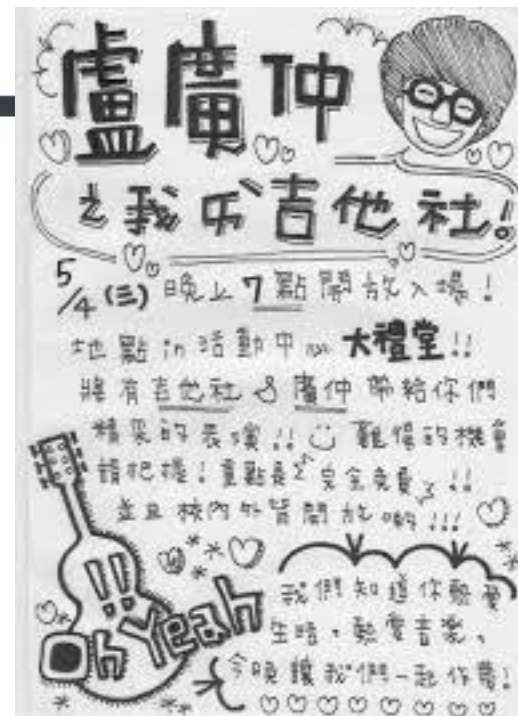 盧廣仲
之我ㄞ吉他社!
5/4 (三) 晚上7點開放入場!
地點in活動中心大禮堂!!
將有吉他社&廣仲帶給你們
精采的表演!! 難得的機會
請把握!重點是完全免費!!
並且校內外皆開放喲!!!
!! Oh Yeah
我們知道你熱愛
生活,熱愛音樂,
今晚讓我們一起作夢!